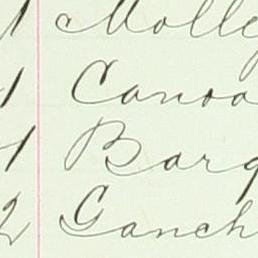 1 Molle
1 Canoa
1 Barq
2 Ganch